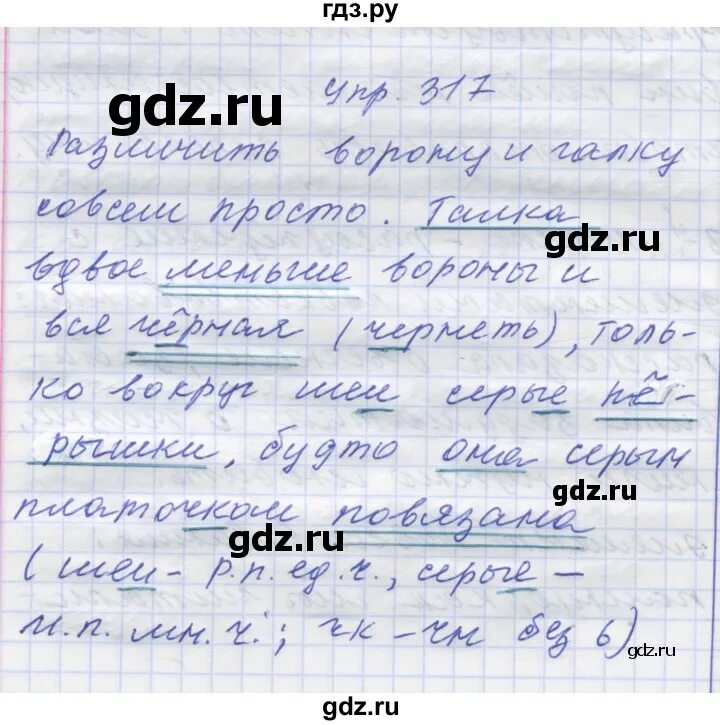 гдз.ру
gdz.ru
Упр. 317
Различить ворону и галку
совсем просто. Галка
gdz.ru
вдвое меньше вороны и
вся чёрная (чернеть), толь-
ко вокруг шеи серые пёт-
рышки, будто она серым
gdz.ru
платочком повязана
gdz.ru
(шеи - р.п. ед.ч., серые -
и.п. мн.ч.; чк - чн без ь)
gdz.ru
gdz.ru